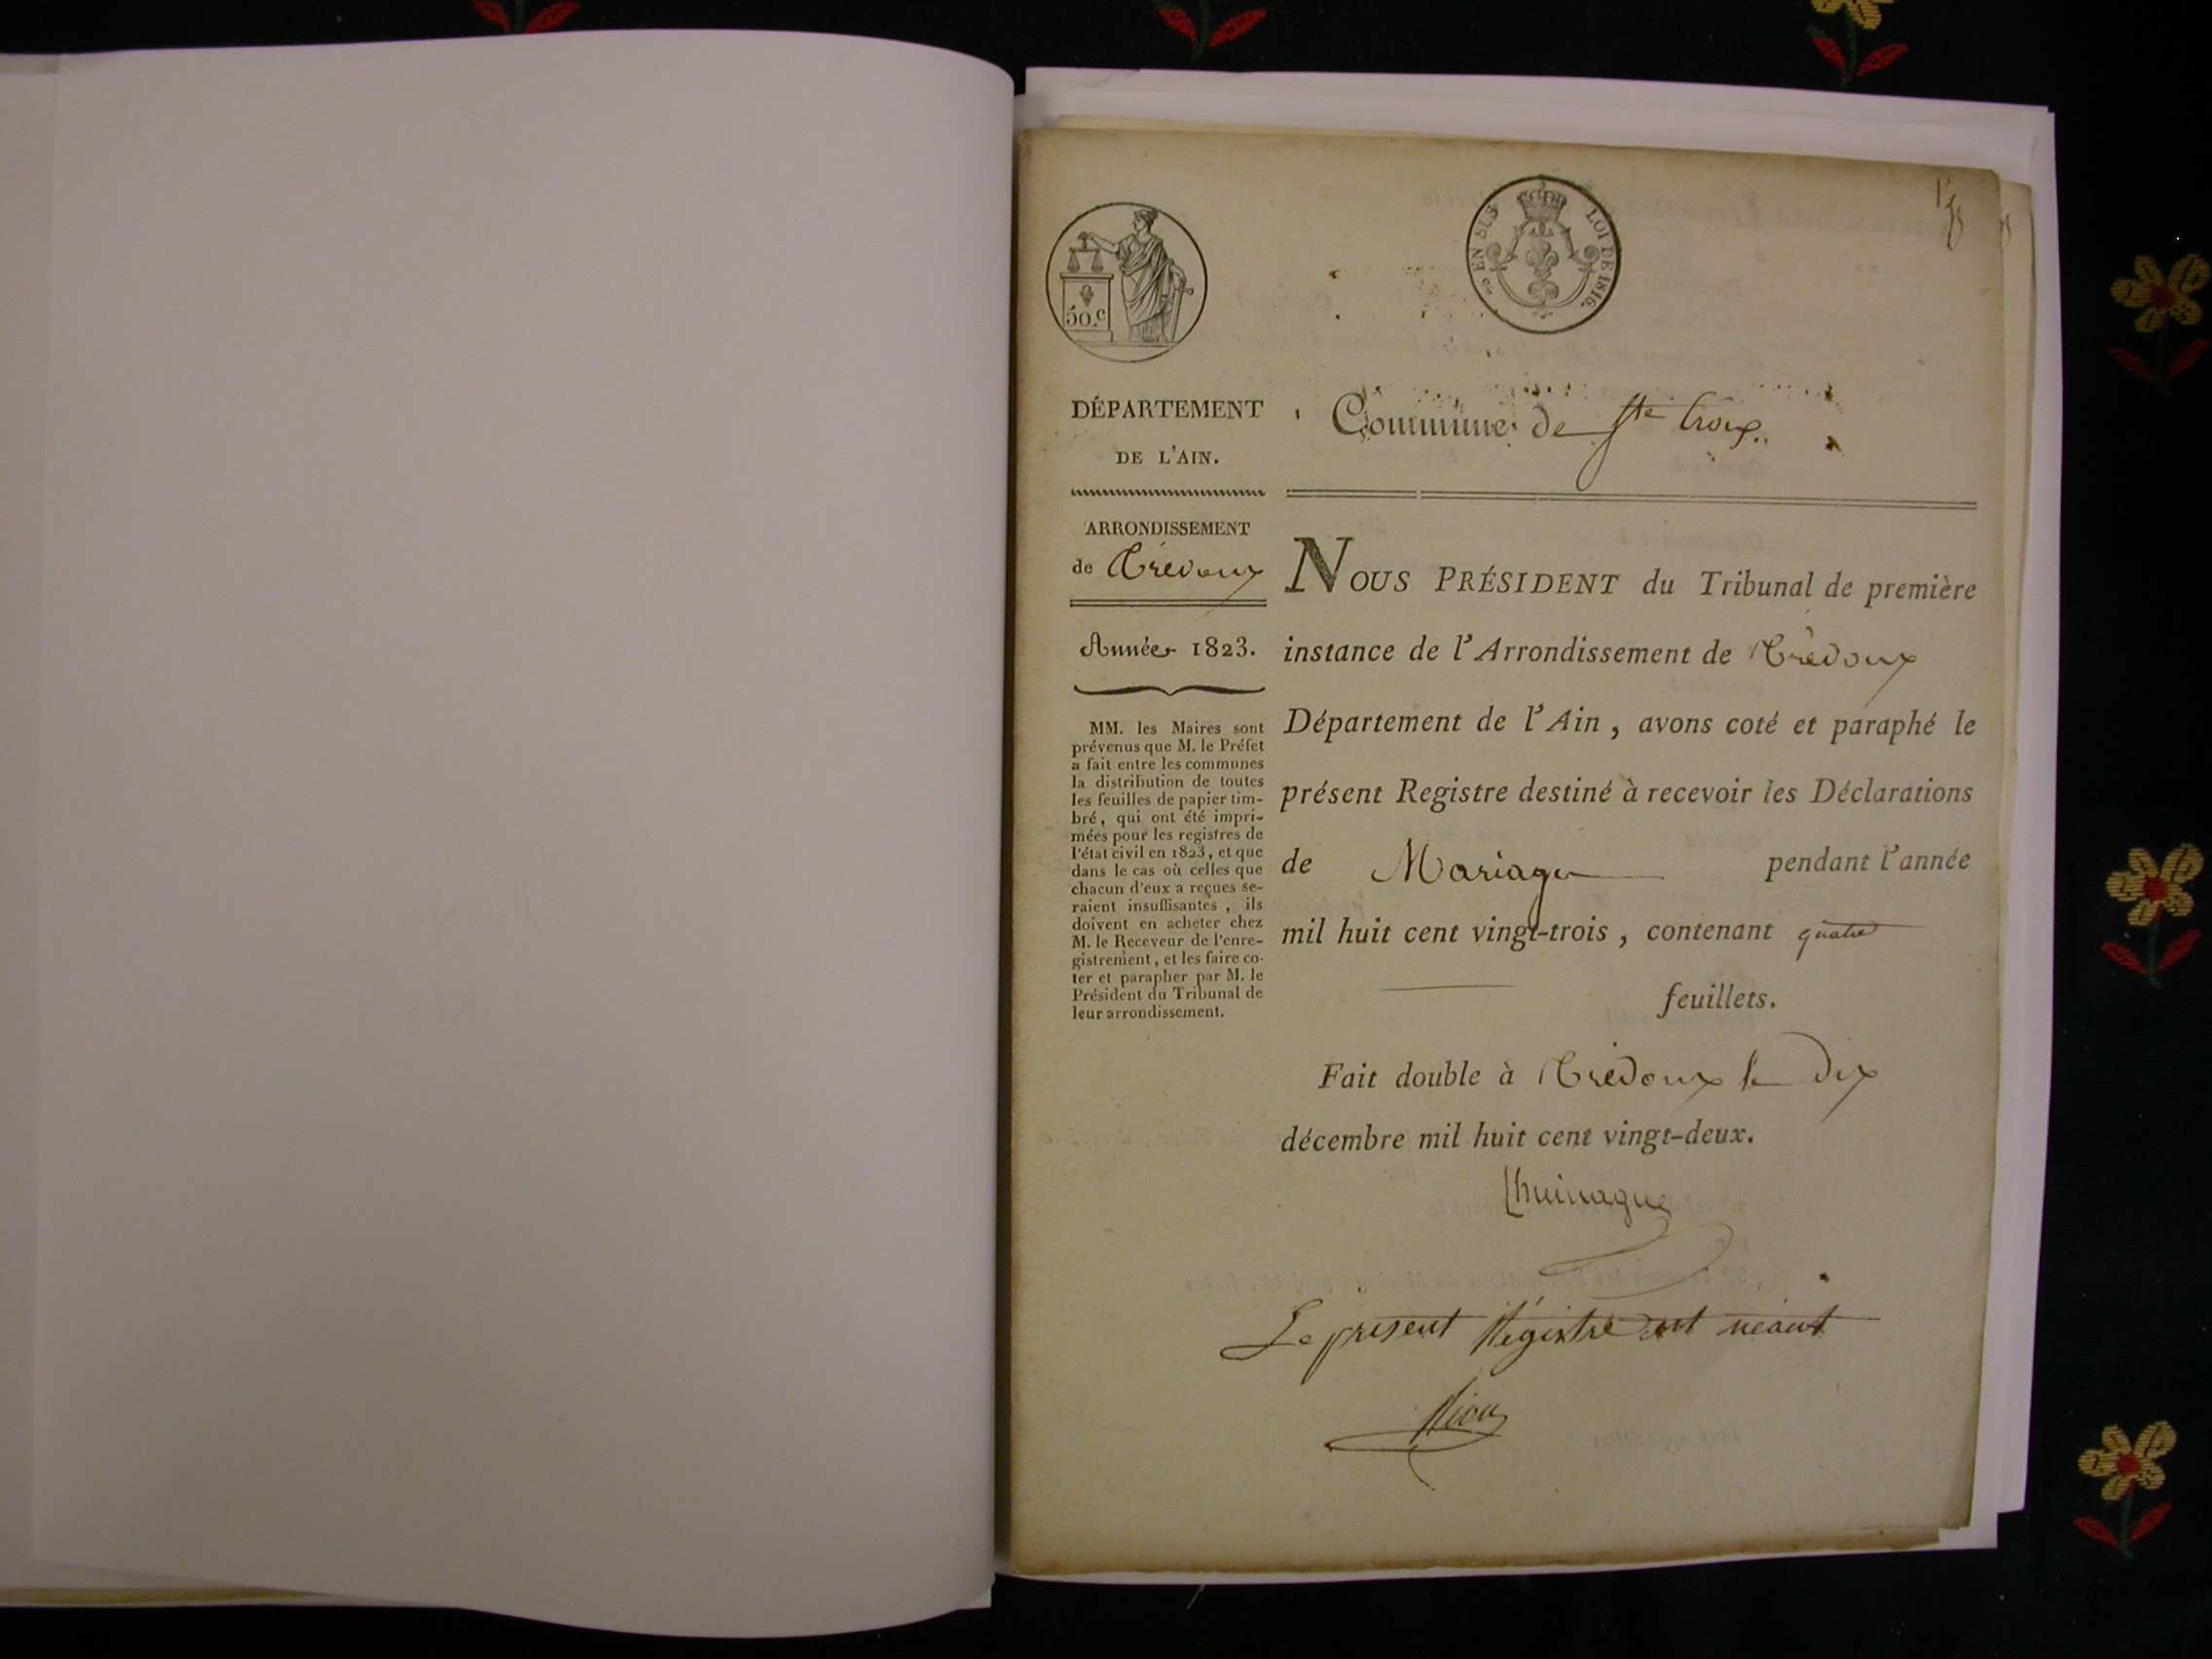 50.c
c. EN SUS LOI DE 1816.
DÉPARTEMENT
DE L'AIN.
ARRONDISSEMENT
de Trévoux
Année 1823.
MM. les Maires sont
prévenus que M. le Préfet
a fait entre les communes
la distribution de toutes
les feuilles de papier tim-
bré, qui ont été impri-
mées pour les registres de
l'état civil en 1823, et que
dans le cas où celles que
chacun d'eux a reçues se-
raient insuffisantes, ils
doivent en acheter chez
M. le Receveur de l'enre-
gistrement, et les faire co-
ter et parapher par M. le
Président du Tribunal de
leur arrondissement.
Commune de Ste Croix
NOUS PRÉSIDENT du Tribunal de première
instance de l'Arrondissement de Trévoux
Département de l'Ain, avons coté et paraphé le
présent Registre destiné à recevoir les Déclarations
de Mariage pendant l'année
mil huit cent vingt-trois, contenant quatre
feuillets.
Fait double à Trévoux le dix
décembre mil huit cent vingt-deux.
Le présent Régistre est néant